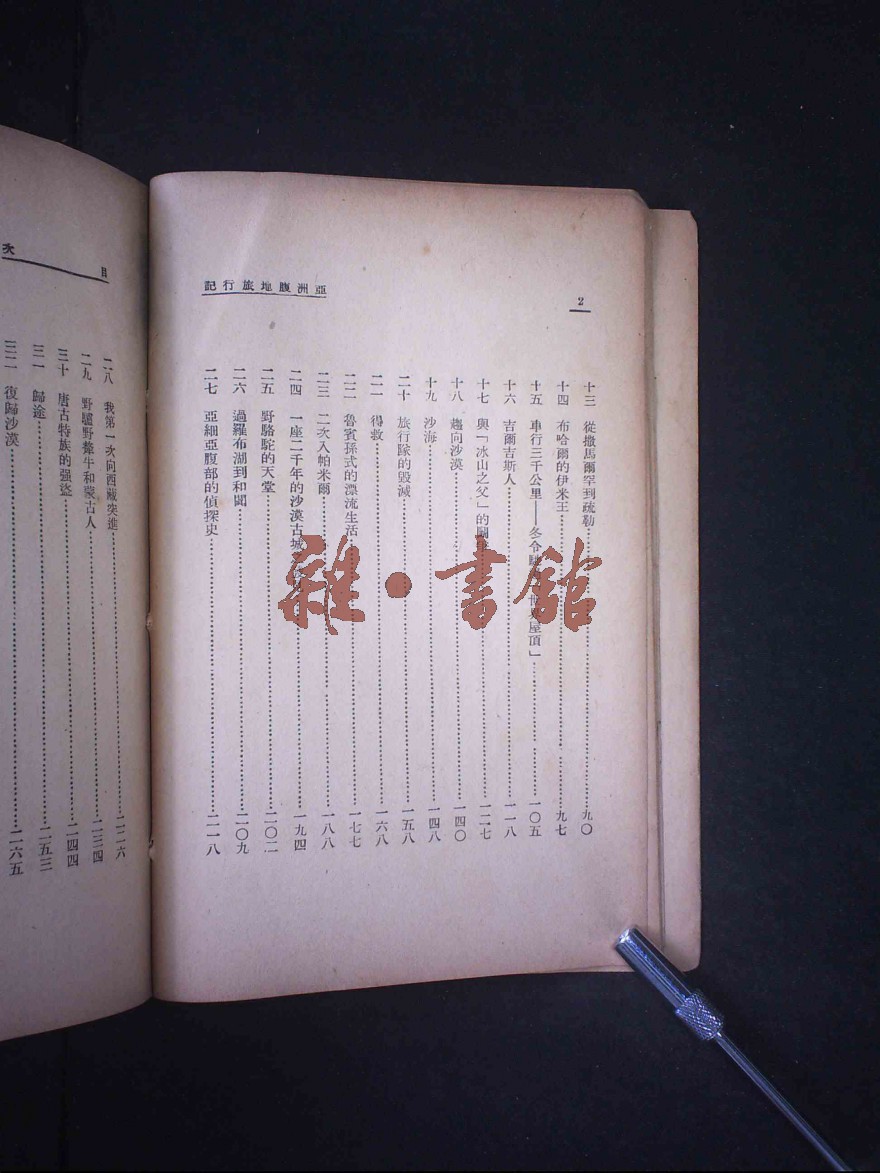 亞洲腹地旅行記
2
十三 從撒馬爾罕到疏勒 九〇
十四 布哈爾的伊米王 九七
十五 車行三千公里——冬令 屋頂」 一〇五
十六 吉爾吉斯人 一一八
十七 與「冰山之父」的 一二七
十八 趨向沙漠 一四〇
十九 沙海 一四八
二十 旅行隊的毀滅 一五八
二一 得救 一六八
二二 魯賓孫式的漂流生活 一七七
二三 二次入帕米爾 一八八
二四 一座二千年的沙漠古城 一九四
二五 野駱駝的天堂 二〇二
二六 過羅布湖到和闐 二〇九
二七 亞細亞腹部的偵探史 二一八
目次
二八 我第一次向西藏突進 二二六
二九 野驢野犛牛和蒙古人 二三四
三十 唐古特族的強盜 二四四
三一 歸途 二五三
三二 復歸沙漠 二六五
雜·書館